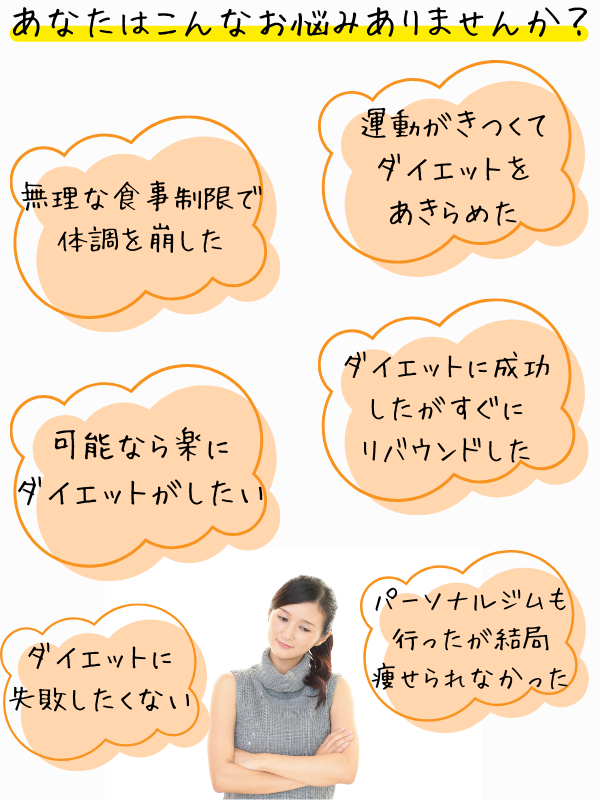 あなたはこんなお悩みありませんか？
運動がきつくて
ダイエットを
あきらめた
無理な食事制限で
体調を崩した
ダイエットに成功
したがすぐに
リバウンドした
可能なら楽に
ダイエットがしたい
パーソナルジムも
行ったが結局
痩せられなかった
ダイエットに
失敗したくない